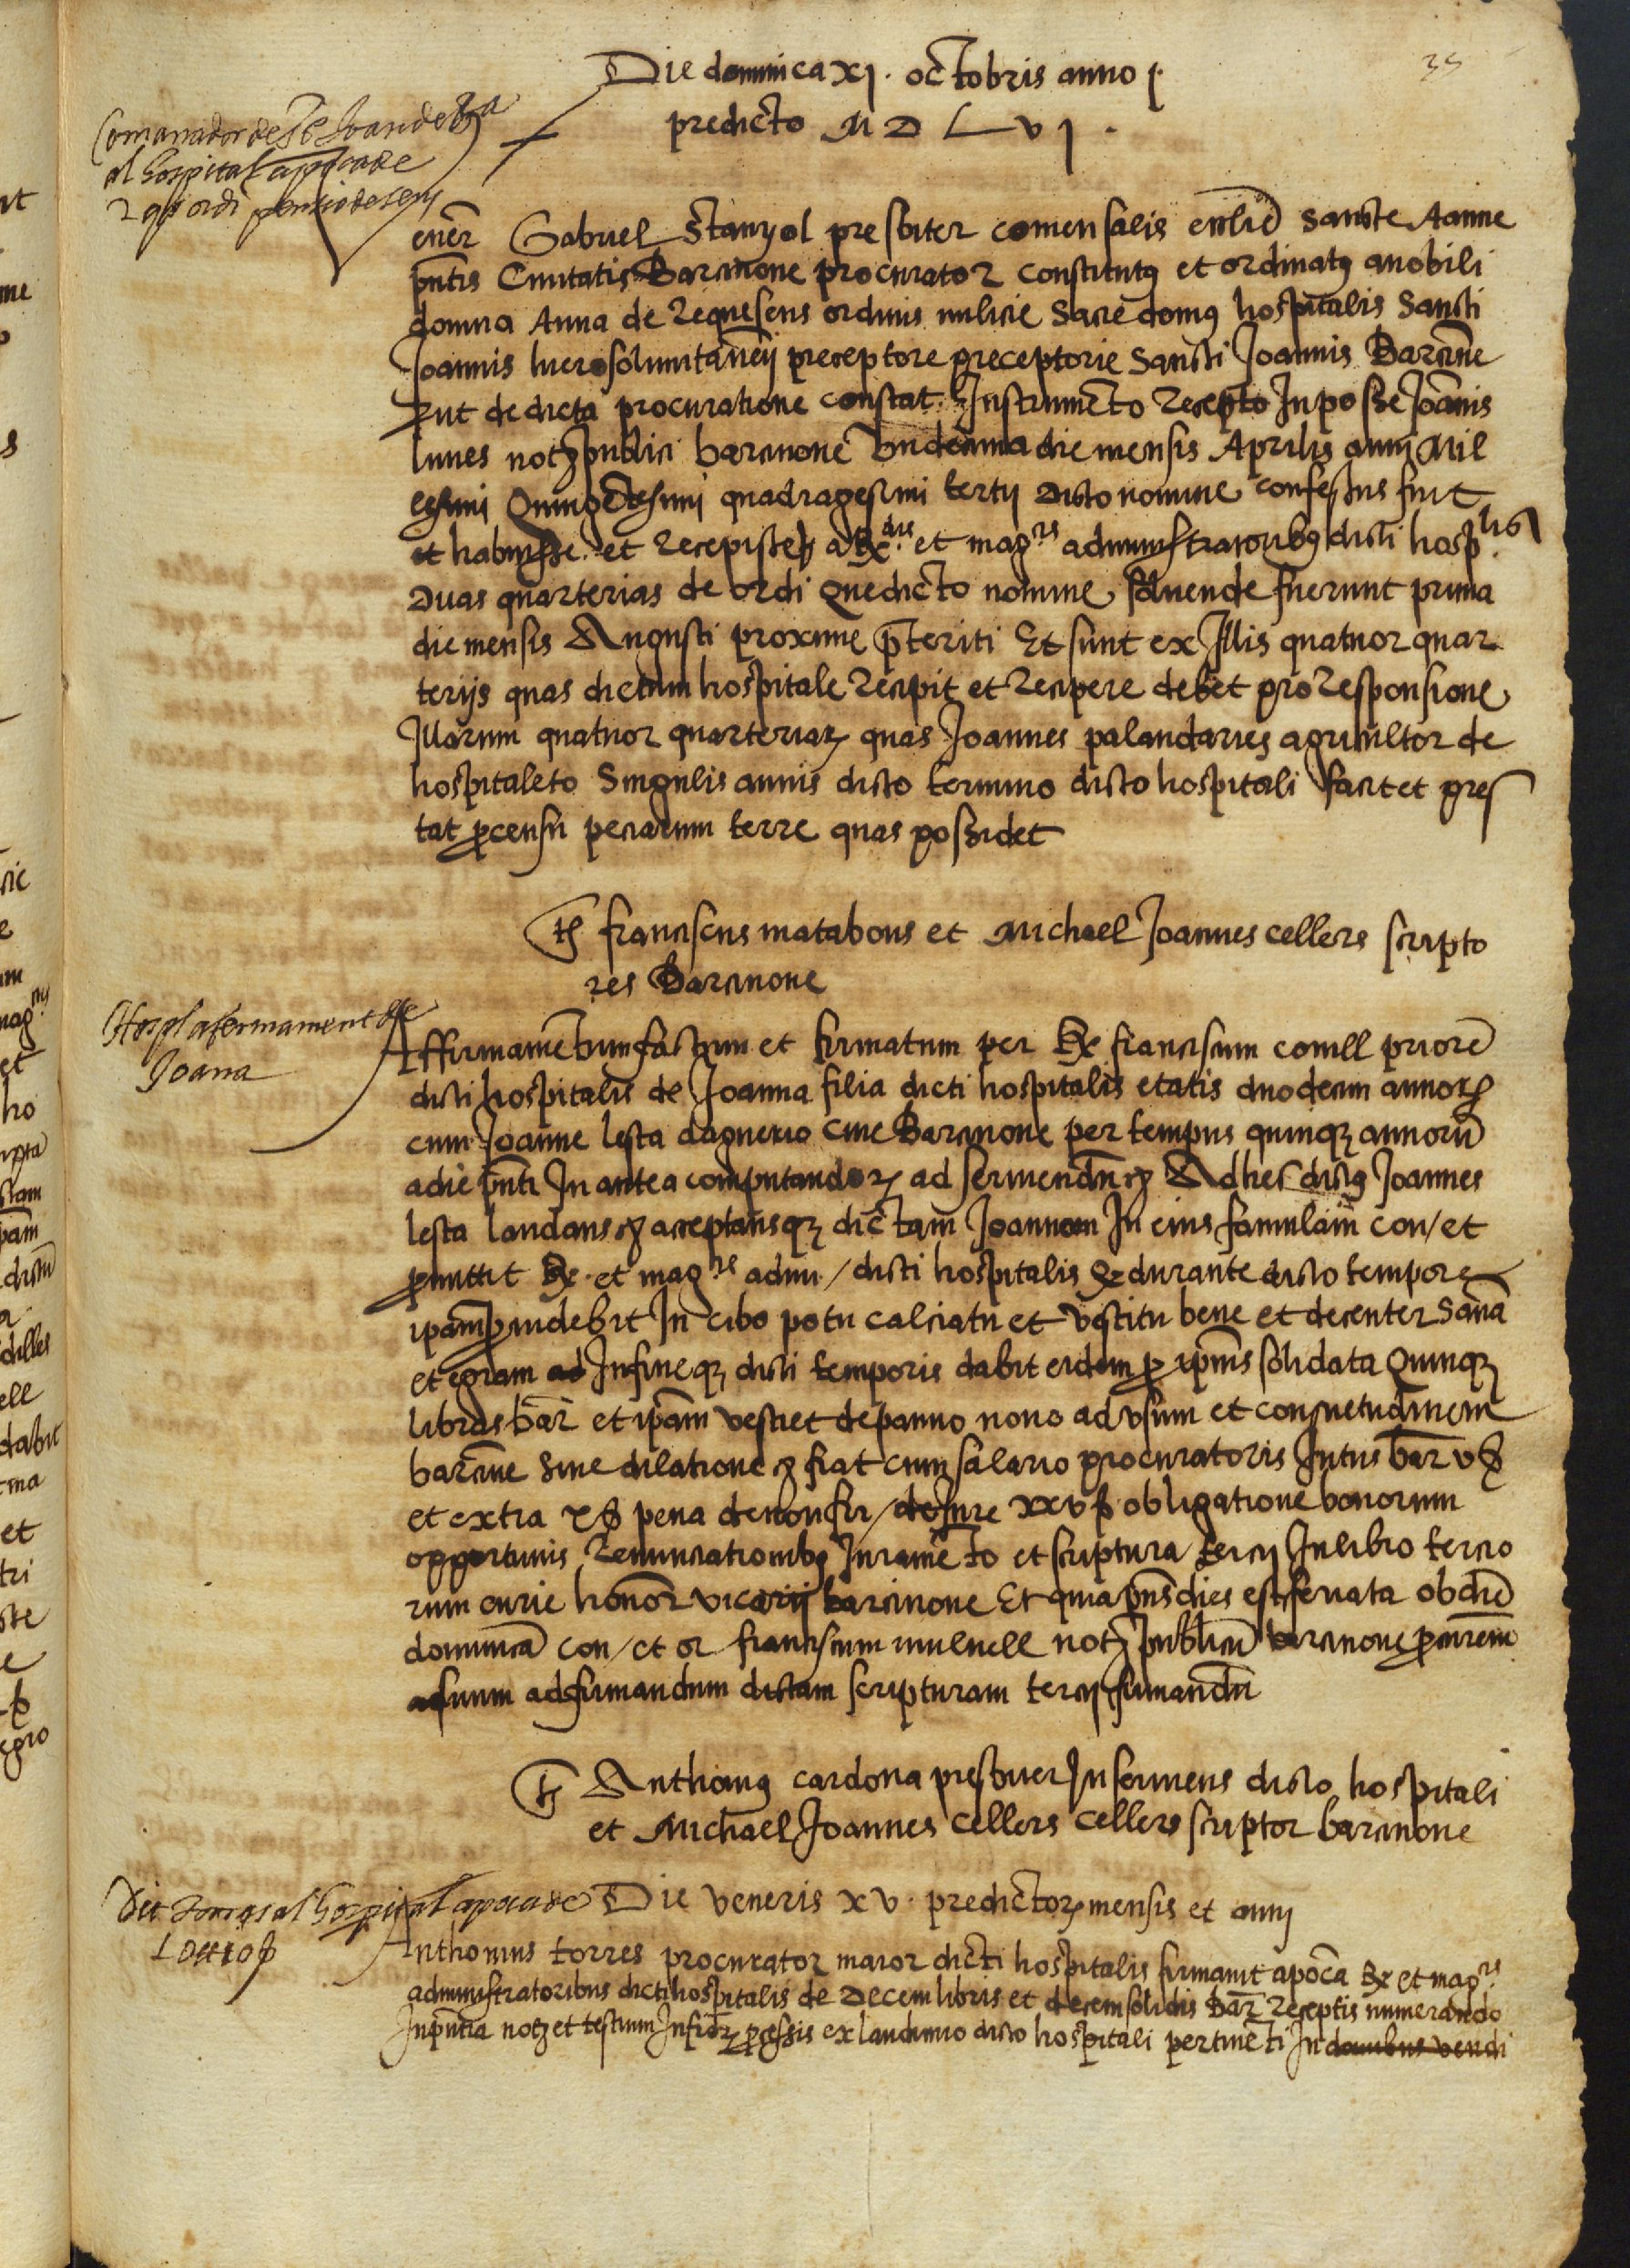 35
Die dominica xj. octobris anno
predicto M D L vj.
Comanador de St Joan de
al hospital apoca de
2 qrs ordi pensio de cens
ener Gabriel Stanyol presbiter comensalis ecclie sancte Anne
pntis Civitatis Barcinone procurator constitutus et ordinatus a nobili
domna Anna de Requesens ordinis milicie Sacre domus hospitalis Sancti
Joannis hierosolimitanen preceptore preceptorie Sancti Joannis Barcine
prut de dicta procuratione constat Instrumento recepto In posse Joannis
lunes not publici barcinone undecima die mensis Aprilis anni Mil
lesimi Quingetesimi quadragesimi tertij dicto nomine confessus fuit
et habuisse et recepisse a Rdis et magcis administratoribus dicti hosplis
duas quarterias de ordi que dicto nomine solvende fuerunt prima
die mensis Augusti proxime preteriti Et sunt ex Illis quatuor quar
terijs quas dictum hospitale recipit et recipere debet pro responsione
Illarum quatuor quarteriar quas Joannes palandaries agricultor de
hospitaleto Singulis annis dicto termino dicto hospitali facit et pres
tat pro censu peciarum terre quas possidet
ts franciscus matabons et Michael Joannes cellers scripto
res Barcinone
Hospl afermament de
Joana
Affirmametum factum et firmatum per Rx franciscum comell priore
dicti hospitalis de Joanna filia dicti hospitalis etatis duodecim annor
cum Joanne lesta daguerio cive Barcinone per tempus quinq annoru
a die pnti In antea computandor ad serviendu &c Ad hec dictus Joannes
lesta laudans &c acceptansq dictam Joannam In eius famulam con/ et
promittit Rx et magcis admi/ dicti hospitalis q durante dicto tempore
ipam providebit In cibo potu calciatu et vestitu bene et decenter Sana
et egram ad In fine q dicti temporis dabit eidem pro ipius solidata Quinq
libras bar et ipam vestiet de panno novo ad usum et consuetudinem
barcine Sine dilatione &c fiat cum salario procuratoris Intus bar v ß
et extra x ß pena de non fir/ de Jure xxv ß obligatione bonorum
opportunis renunciationibus Juramento et scriptura tercij In libro tercio
rum curie honor vicarij barcinone Et quia pns dies est feriata ob die
dominica con/ et or franciscum mulnell not publicu barcinone procurem
a suum ad firmandum dictam scripturam tercij firmandu
ts Anthonius cardona presbiter In serviens dicto hospitali
et Michael Joannes Cellers Cellers scriptor barcinone
Dit Torres al hospital apoca de
10 ll 10 ß
Die veneris xv. predictor mensis et anni
Anthonius torres procurator maior dicti hospitalis firmavit apoca Rx et magcis
administratoribus dicti hospitalis de decem libris et decem solidis Bar receptis numerando
In pntia not et testium Infror processis ex laudimio dicto hospitali pertineti In domibus vendi